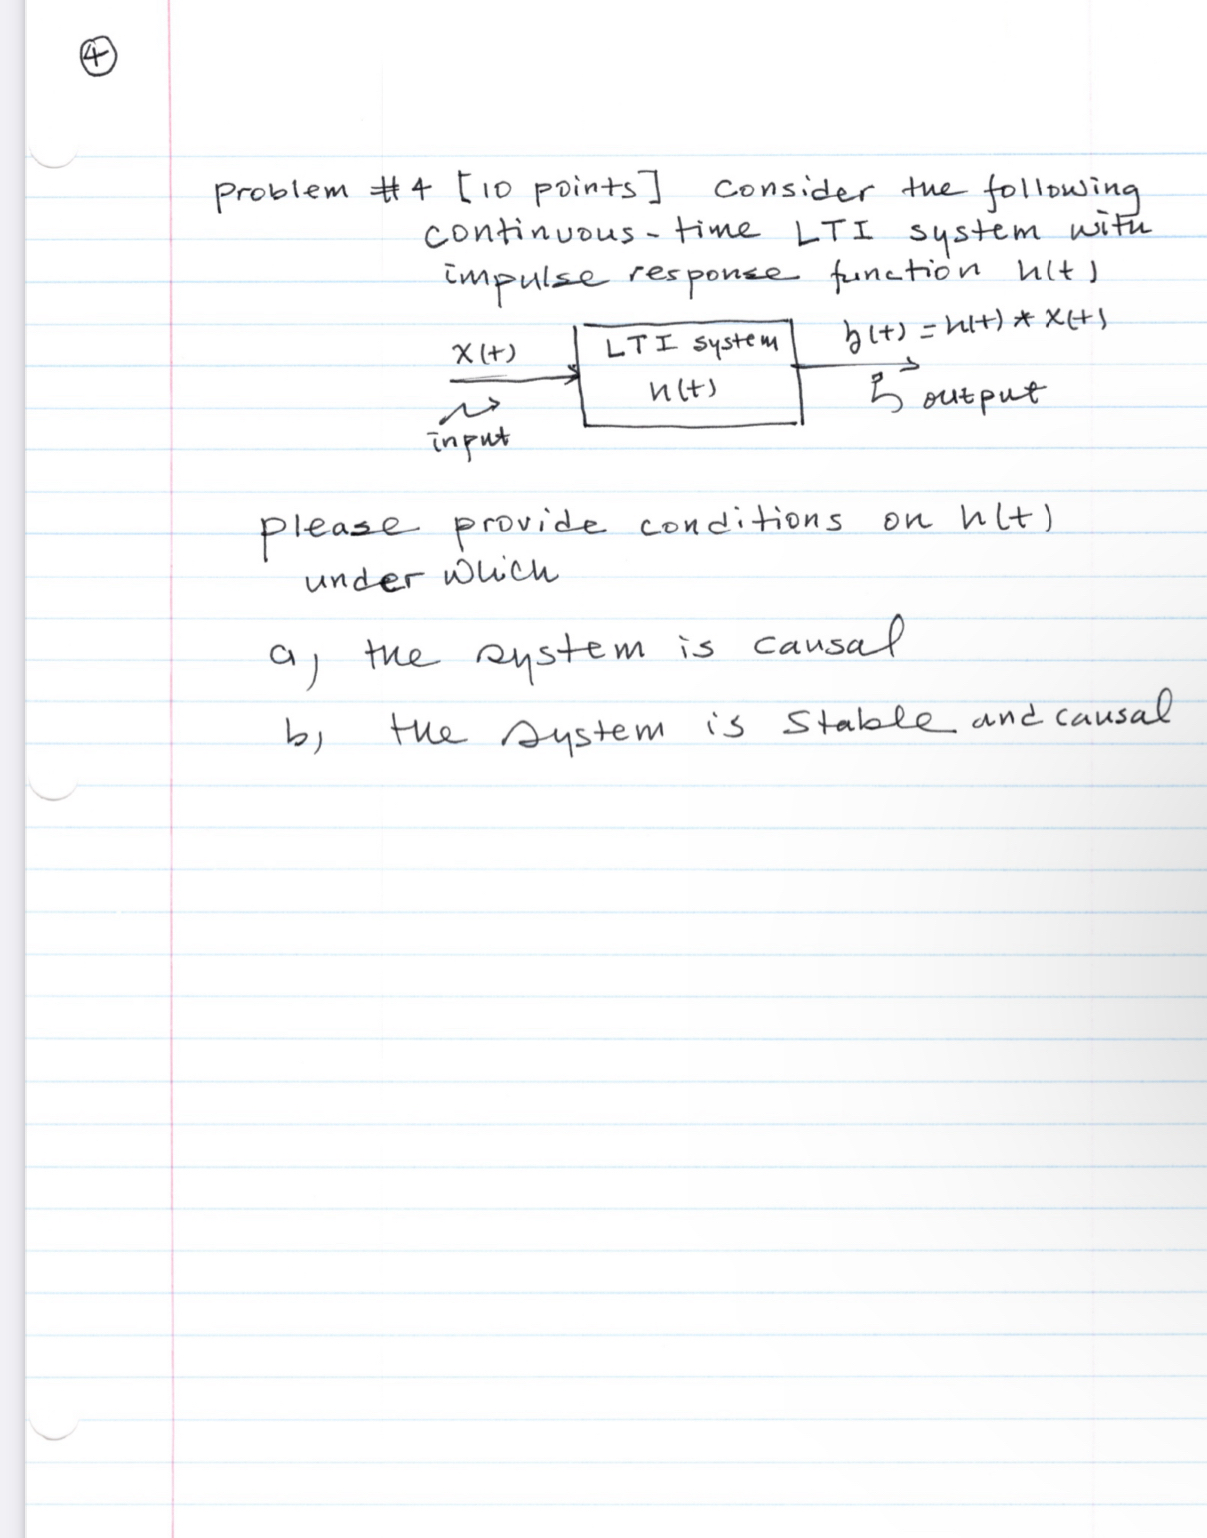 4
Problem #4 [10 points] Consider the following
continuous-time LTI system with
impulse response function h(t)
x(t)
LTI system
h(t)
y(t) = h(t) * x(t)
input
output
please provide conditions on h(t)
under which
a) the system is causal
b) the system is stable and causal